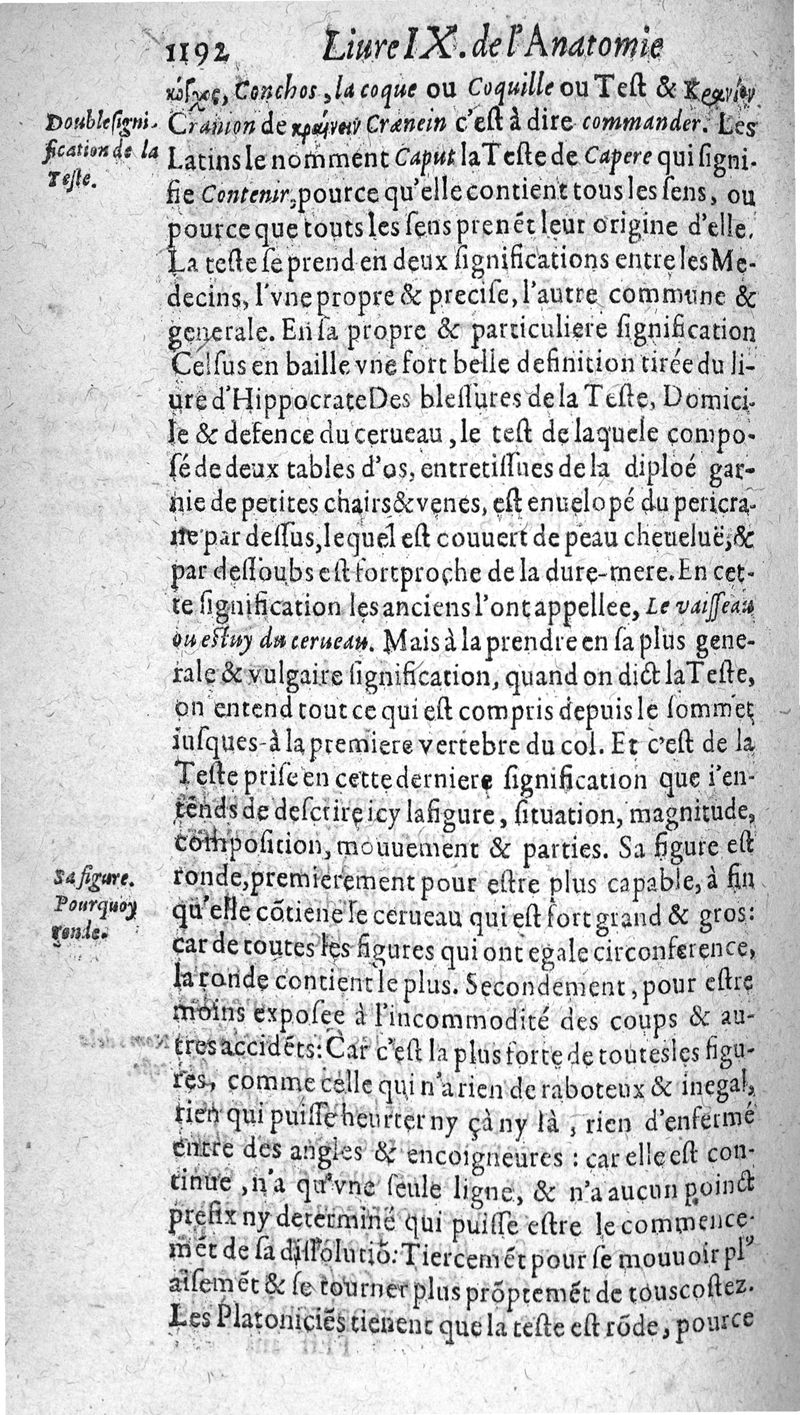 1192 Liure IX. de l'Anatomie
κόγχος, Conchos, la coque ou Coquille ou Test & Κρανίον
Double signi-
fication de la
Teste.
Cranion de κραίνειν Crænein c'est à dire commander. Les
Latins le nomment Caput la Teste de Capere qui signi-
fie Contenir, pource qu'elle contient tous les sens, ou
pource que touts les sens prenẽt leur origine d'elle.
La teste se prend en deux significations entre les Me-
decins, l'vne propre & precise, l'autre commune &
generale. En sa propre & particuliere signification
Celsus en baille vne fort belle definition tirée du li-
ure d'Hippocrate Des blessures de la Teste, Domici-
le & defence du cerueau, le test de laquele compo-
sé de deux tables d'os, entretissues de la diploé gar-
nie de petites chairs & venes, est enuelopé du pericra-
ne par dessus, lequel est couuert de peau cheueluë, &
par dessoubs est fort proche de la dure-mere. En cet-
te signification les anciens l'ont appellee, Le vaisseau
ou estuy du cerueau. Mais à la prendre en sa plus gene-
rale & vulgaire signification, quand on dict la Teste,
on entend tout ce qui est compris depuis le sommet
iusques-à la premiere vertebre du col. Et c'est de la
Teste prise en cette derniere signification que i'en-
tẽds de descrire icy la figure, situation, magnitude,
cõmposition, mouuement & parties. Sa figure est
Sa figure.
Pourquoy
ronde.
ronde, premierement pour estre plus capable, à fin
qu'elle cõtiene le cerueau qui est fort grand & gros:
car de toutes les figures qui ont egale circonference,
la ronde contient le plus. Secondement, pour estre
moins exposee à l'incommodité des coups & au-
tres accidẽts: Car c'est la plus forte de toutes les figu-
res, comme celle qui n'a rien de raboteux & inegal,
rien qui puisse heurter ny çà ny là, rien d'enfermé
entre des angles & encoigneures : car elle est con-
tinue, n'a qu'vne seule ligne, & n'a aucun poinct
prefix ny determiné qui puisse estre le commence-
mẽt de sa dissolutiõ: Tiercemẽt pour se mouuoir plꝰ
aisemẽt & se tourner plus prõptemẽt de tous costez.
Les Platoniciẽs tienent que la teste est rõde, pource